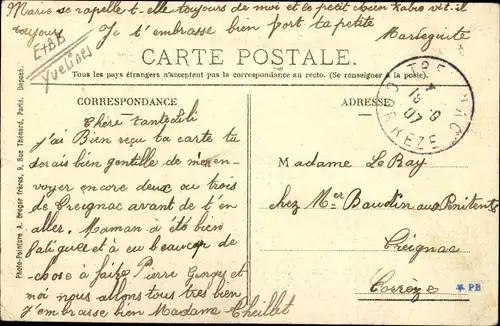 Marie se rappelle t-elle toujours de moi et le petit chien Kabio vit-il
toujours Je t'embrasse bien fort ta petite
Marguerite
E+BB
Yvelines
CARTE POSTALE.
Tous les pays étrangers n'acceptent pas la correspondance au recto. (Se renseigner à la poste).
Photo-Peinture A. Breger frères, 9, Rue Thénard, Paris. Déposé.
CORRESPONDANCE
Chère tante Lili
j'ai Bien reçu ta carte tu
serais bien gentille de m'en
voyer encore deux ou trois
de Treignac avant de t'en
aller. Maman a été bien
fatiguée et a eu beaucoup de
chose a faire Pierre Gorges et
moi nous allons tous très bien
j'embrasse bien Madame Cheillet
ADRESSE
TREIGNAC
13 9
07
CORREZE
Madame Le Ray
chez Mer Baudin aux Penitents
Treignac
Corrèze
* PB